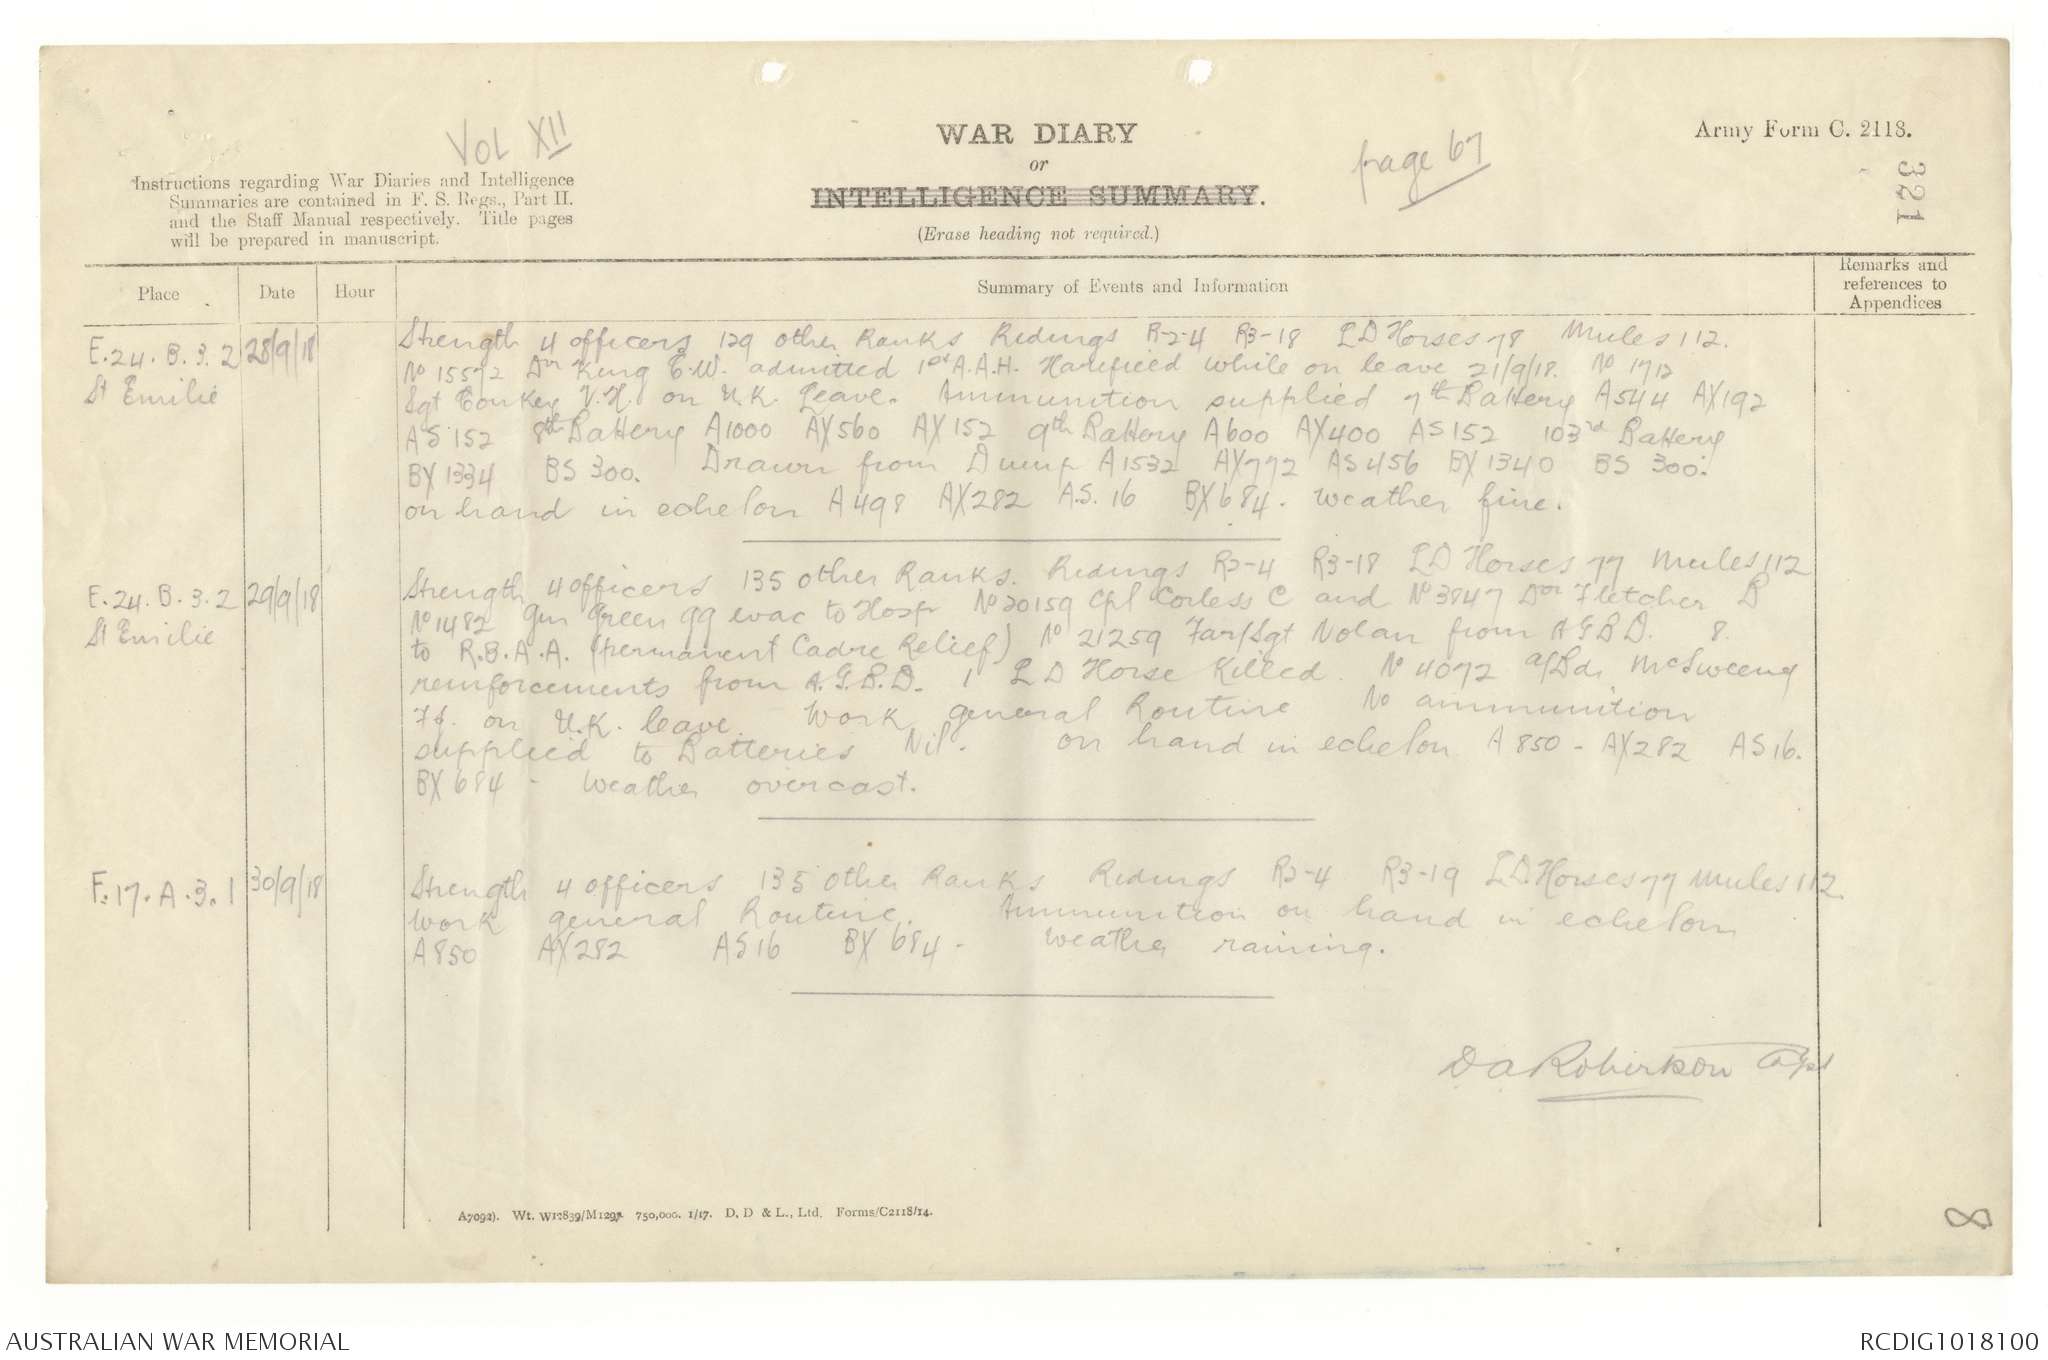 Vol XII
WAR DIARY
or
INTELLIGENCE SUMMARY.
(Erase heading not required.)
page 67
Army Form C. 2118.
321
Instructions regarding War Diaries and Intelligence
Summaries are contained in F. S. Regs., Part II.
and the Staff Manual respectively. Title pages
will be prepared in manuscript.
Place Date Hour Summary of Events and Information Remarks and references to Appendices
E.24.B.3.2 28/9/18 Strength 4 officers 129 other Ranks Ridings R-2-4 R3-18 LD Horses 78 Mules 112.
St Emilie No 15572 Dvr King E.W. admitted 1st A.A.H. Harefield while on leave 21/9/18. No 1712
Sgt Conkey V.H. on U.K. Leave. Ammunition supplied 7th Battery A544 AX192
AS 152 8th Battery A1000 AX560 AX 152 9th Battery A600 AX400 AS 152 103rd Battery
BX 1334 BS 300. Drawn from Dump A1532 AX772 AS 456 BX 1340 BS 300.
on hand in echelon A498 AX282 A.S. 16 BX684. Weather fine.
E.24.B.3.2 29/9/18 Strength 4 officers 135 other Ranks. Ridings R2-4 R3-18 LD Horses 77 Mules 112
St Emilie No 1482 Gnr Green GG evac to Hosp No 20159 Cpl Corless C and No 3847 Dvr Fletcher B
to R.B.A.A. (permanent Cadre Relief) No 21259 Far/Sgt Nolan from A G B D. 8.
reinforcements from A.G.B.D. 1 LD Horse Killed. No 4072 a/Bdr McSweeny
on U.K. leave. Work general Routine No ammunition
supplied to Batteries Nil. on hand in echelon A 850 - AX282 AS 16.
BX 684 - Weather overcast.
F.17.A.3.1 30/9/18 Strength 4 officers 135 other Ranks Ridings R2-4 R3-19 LD.Horses 77 Mules 112.
Work general Routine. Ammunition on hand in echelon
A850 AX282 AS16 BX 684 - Weather raining.
D A Robertson Capt
A7092). Wt. W12839/M1297 750,000. 1/17. D. D & L., Ltd. Forms/C2118/14.
8
AUSTRALIAN WAR MEMORIAL
RCDIG1018100